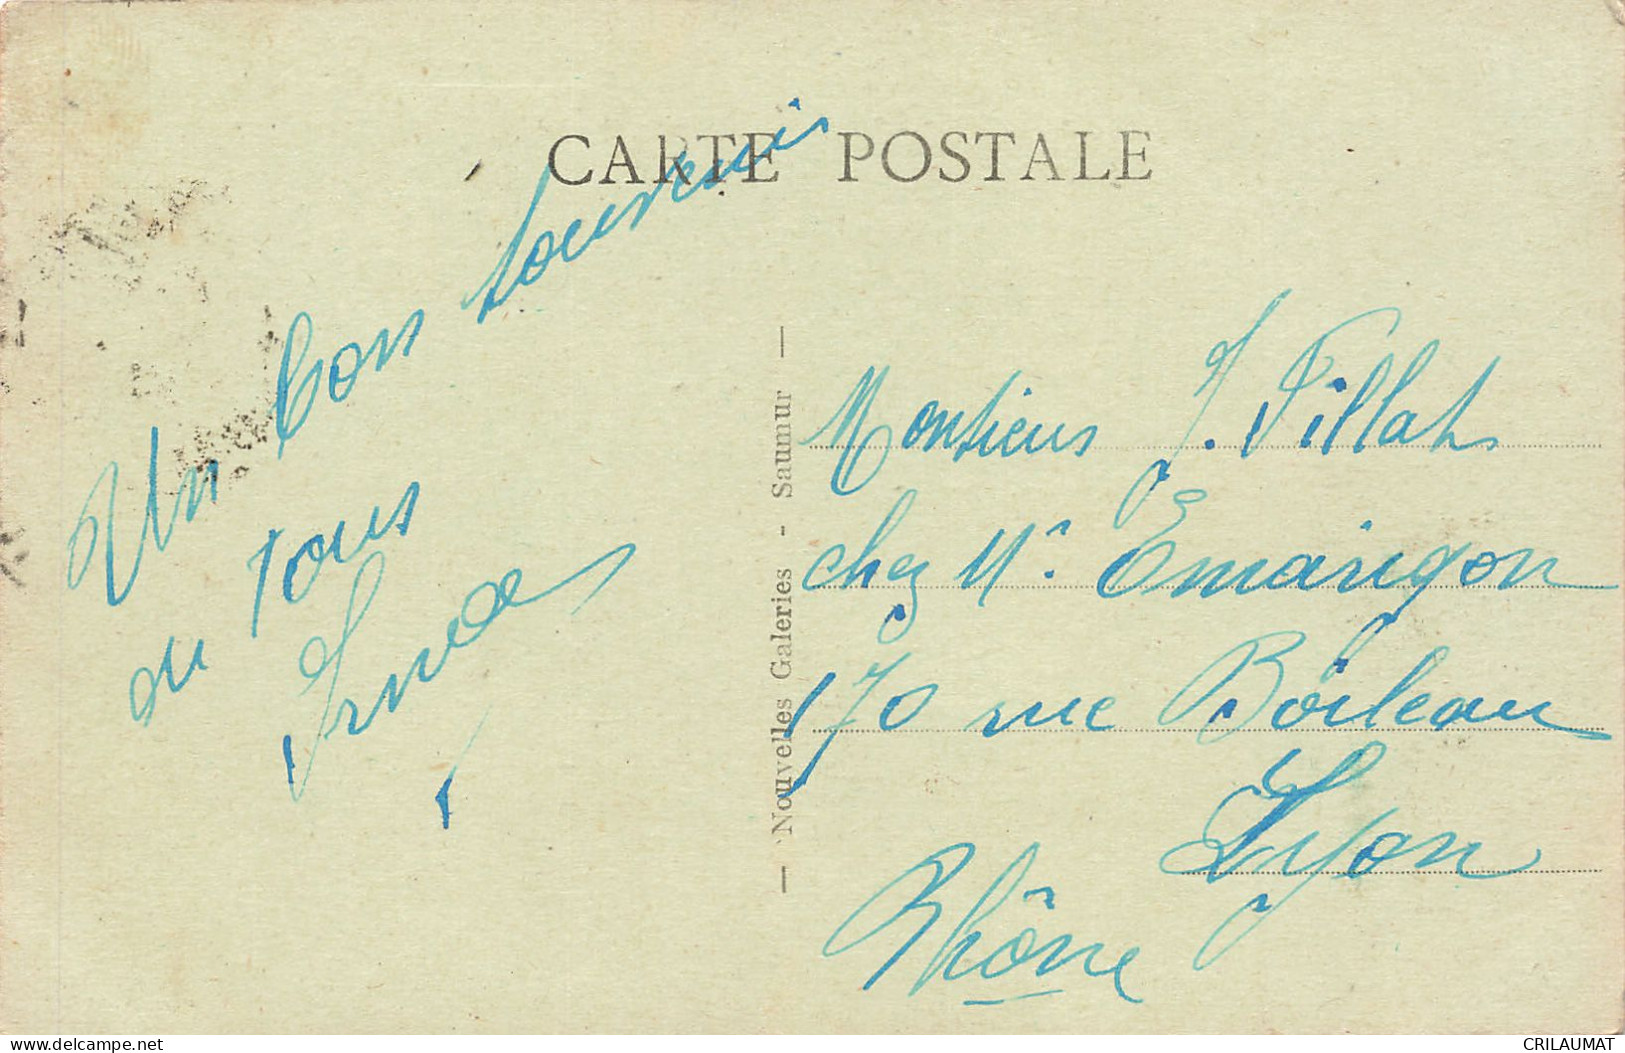 CARTE POSTALE
Un bon souvenir
de tous
— Nouvelles Galeries - Saumur —
Monsieur J. Pillat
chez Mr. Emangon
170 rue Boileau
Lyon
Rhône
www.delcampe.net
CRILAUMAT